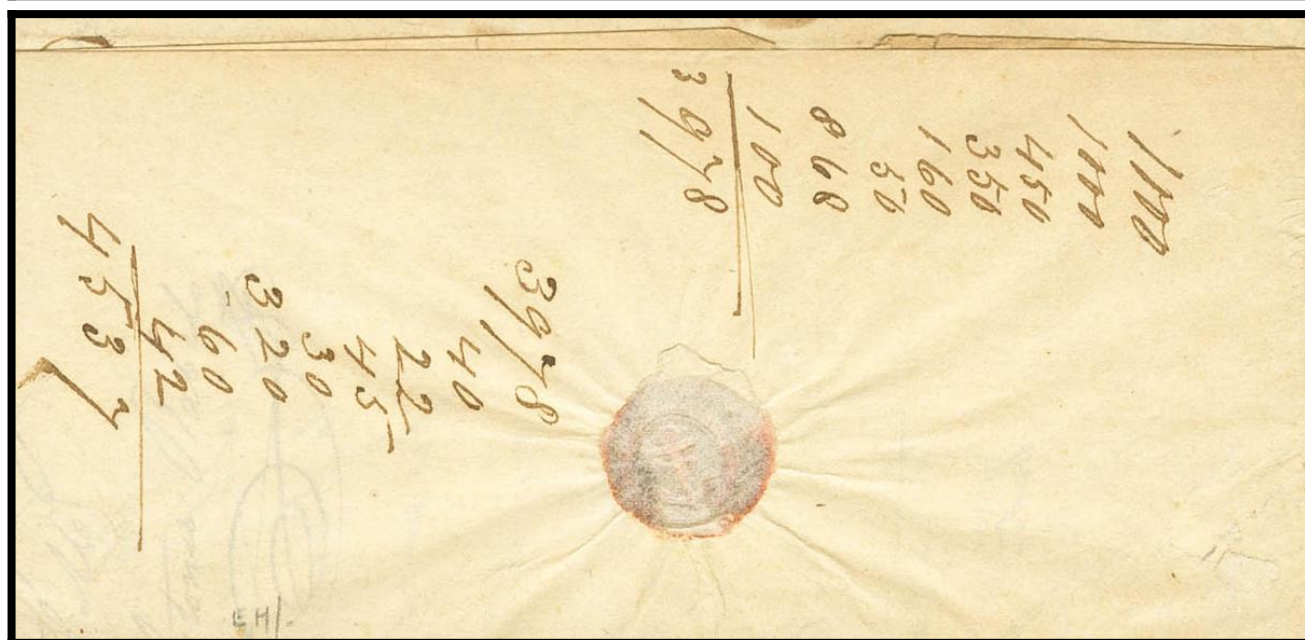 1000
1000
450
350
160
50
868
100
3978
3978
40
22
45
30
320
60
42
4537
EH/-